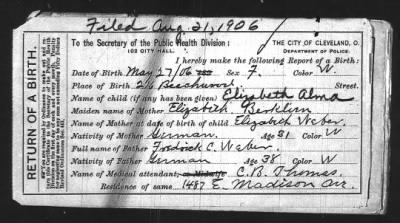 Filed Aug 31, 1906
To the Secretary of the Public Health Division:
THE CITY OF CLEVELAND, O.
102 CITY HALL.
DEPARTMENT OF POLICE.
I hereby make the following Report of a Birth:
Date of Birth May 27/06 Sex F. Color W
Place of Birth 26 Beechwood Street.
Name of child (if any has been given) Elizabeth Alma
Maiden name of Mother Elizabeth
Name of Mother at date of birth of child Elizabeth Weber
Nativity of Mother German. Age 31 Color W
Full name of Father Fredrick C. Weber.
Nativity of Father German Age 38 Color W
Name of Medical attendant, C. B. Thomas.
Residence of same 1487 E. Madison Av.
RETURN OF A BIRTH.